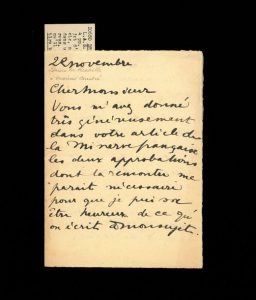 22 novembre.
Cher Monsieur
Vous m'avez donné
très généreusement
dans votre article de
la Minerve française
les deux approbations
dont la rencontre me
paraît nécessaire
pour que je puisse
être heureux de ce qu'
on écrit à mon sujet.